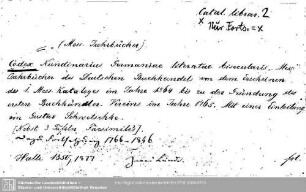 Catal. libror. 2
x Nur Forts. = x
(Mess-Jahrbücher)
Codex Nundinarius Germaniae literatae bisecularis. Mess-
Jahrbücher des Deutschen Buchhandels von dem Erscheinen
des 1. Mess Kataloges im Jahre 1564 bis zu der Gründung des
ersten Buchhändler Vereins im Jahre 1765. Mit einer Einleitung
von Gustav Schwetschke.
[Nebst 3 Tafeln Facsimiles]
Fortsetzung 1766-1846
Halle 1850, 1877
fol.